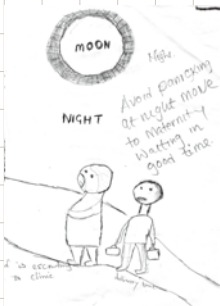 MOON
Night.
NIGHT
Avoid panicking
at night move
to maternity
waiting in
good time.
is escorting
to clinic